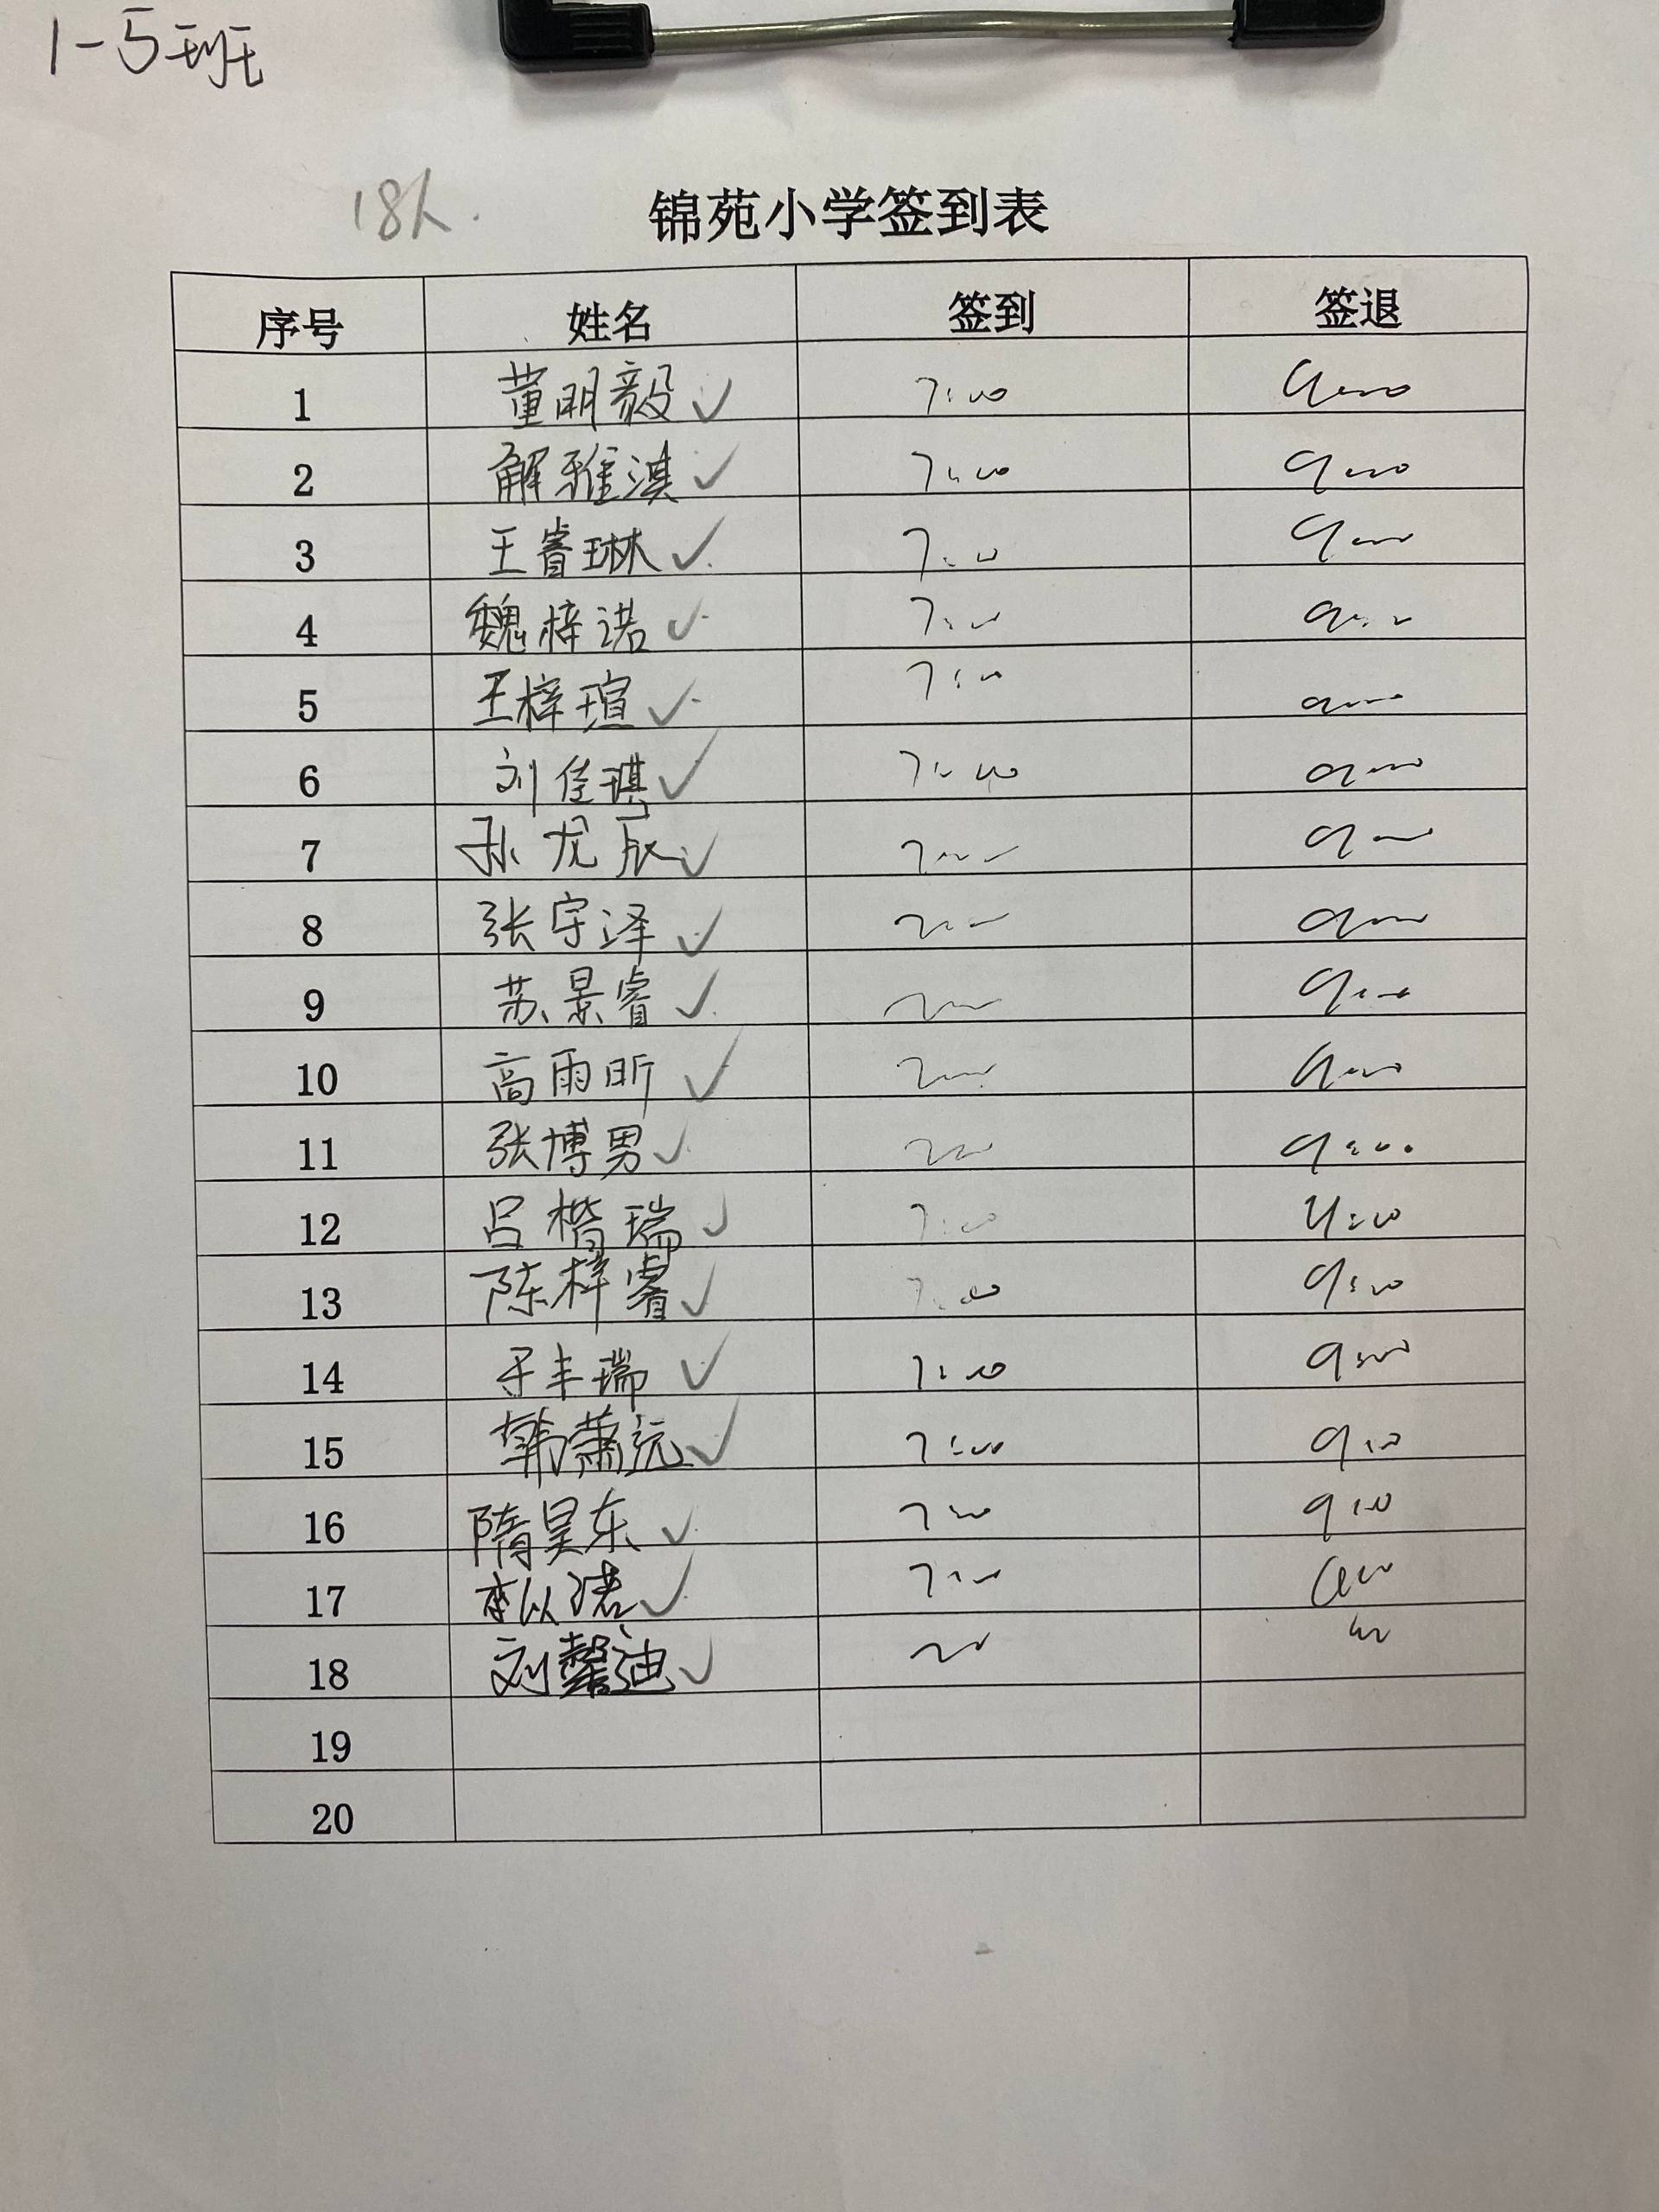 1-5班
18人.
锦苑小学签到表
序号 姓名 签到 签退
1 董明毅 ✓ 7:00 9:00
2 解雅淇 ✓ 7:00 9:00
3 王睿琳 ✓ 7:00 9:00
4 魏梓诺 ✓ 7:00 9:00
5 王梓瑄 ✓ 7:00 9:00
6 刘佳琪 ✓ 7:00 9:00
7 孙龙辰 ✓ 7:00 9:00
8 张宇泽 ✓ 9:00
9 苏景睿 ✓ 9:00
10 高雨昕 ✓ 9:00
11 张博男 ✓ 9:00
12 吕楷瑞 ✓ 7:00 9:00
13 陈梓睿 ✓ 7:00 9:00
14 于丰瑞 ✓ 7:00 9:00
15 韩萧远 ✓ 7:00 9:00
16 隋昊东 ✓ 7:00 9:00
17 李以诺 ✓ 7:00
18 刘馨迪 ✓
19
20